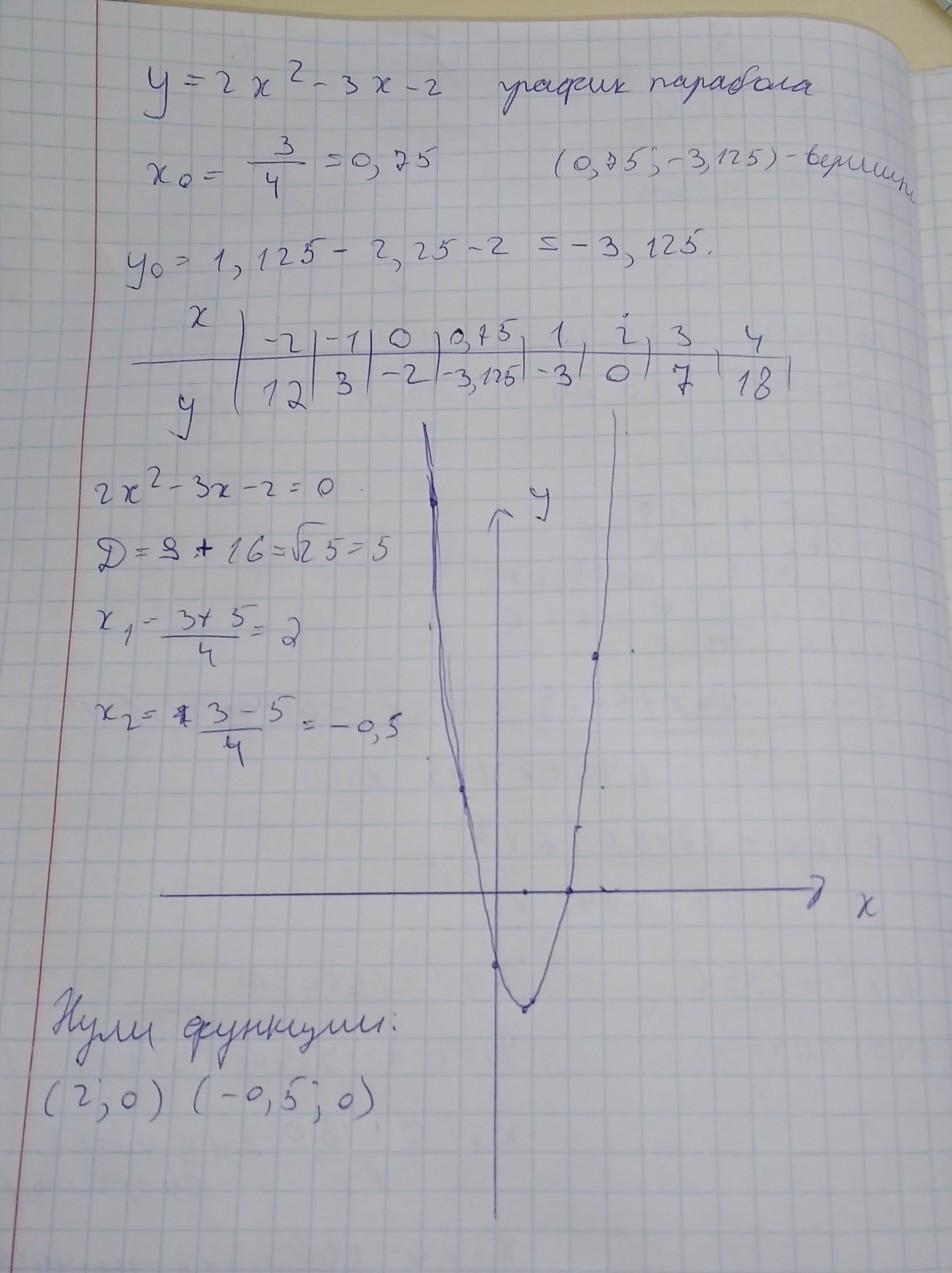 y = 2x² - 3x - 2 график парабола
x₀ = 3/4 = 0,75 (0,75; -3,125) -
y₀ = 1,125 - 2,25 - 2 = -3,125.
x | -2 | -1 | 0 | 0,75 | 1 | 2 | 3 | 4
y | 12 | 3 | -2 | -3,125 | -3 | 0 | 7 | 18
2x² - 3x - 2 = 0
D = 9 + 16 = √25 = 5
y
x₁ = 3+5/4 = 2
x₂ = 3-5/4 = -0,5
x
Нули функции:
(2; 0) (-0,5; 0)